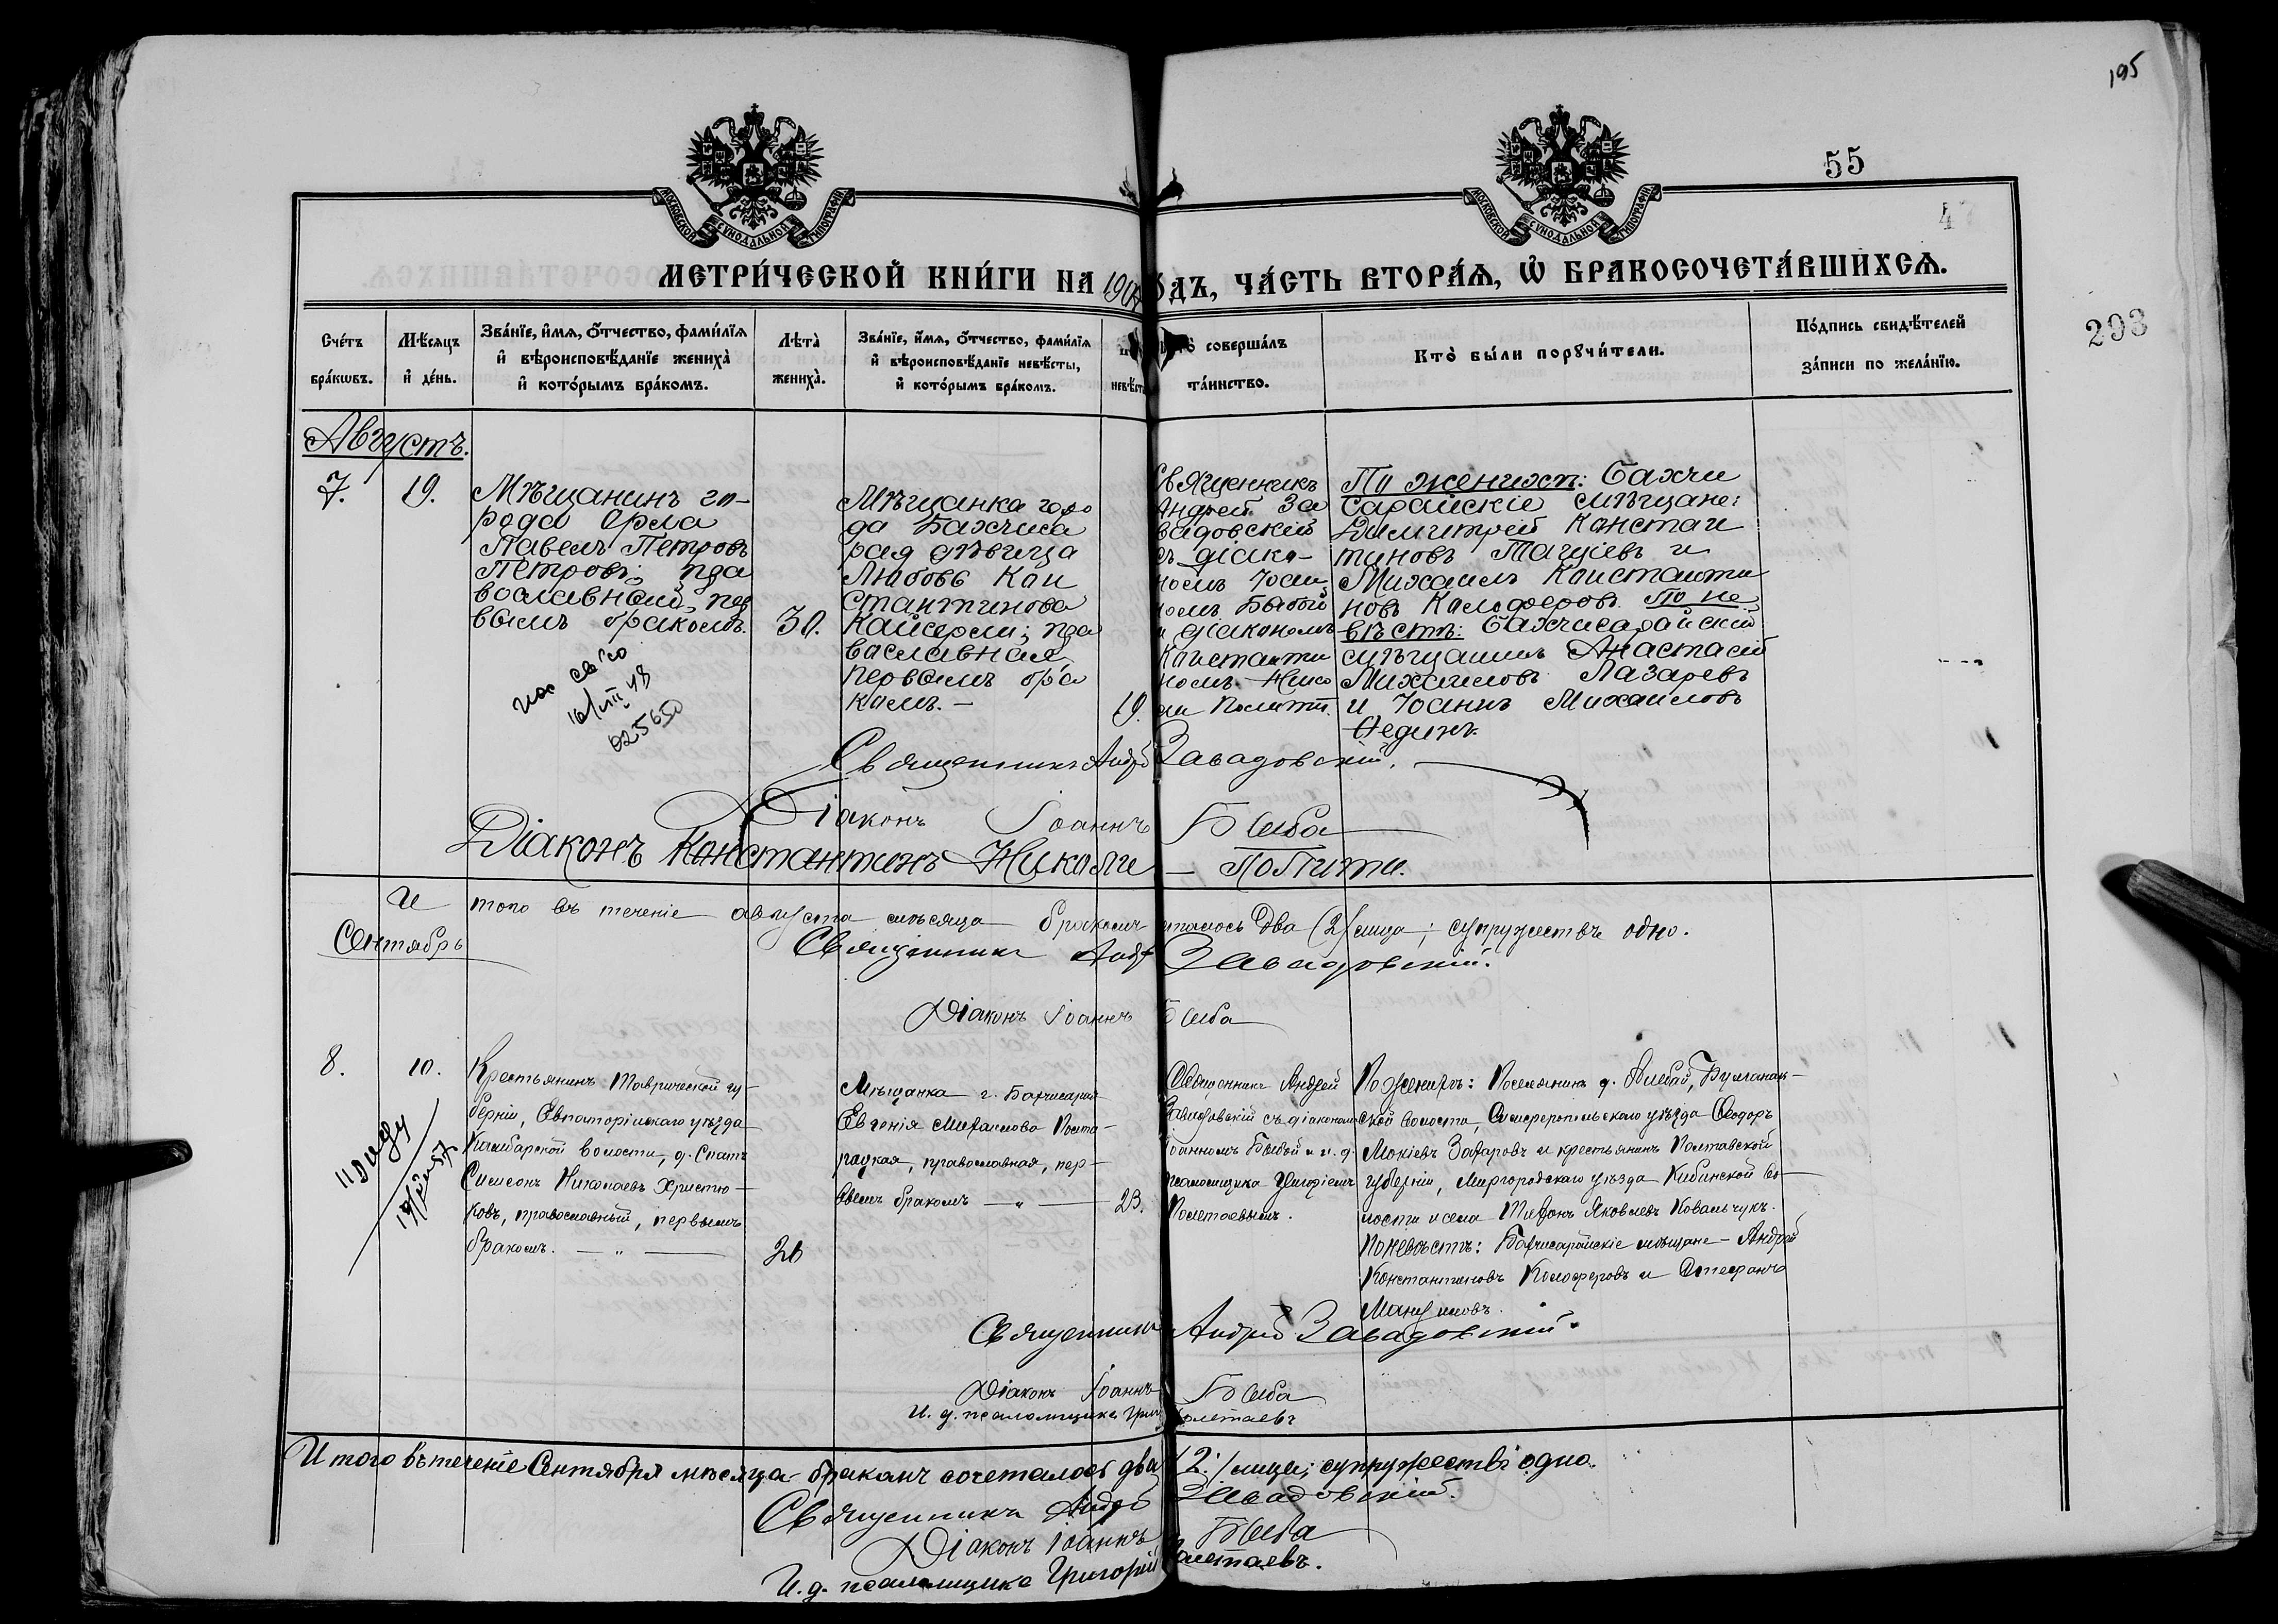 195
55
293
МОСКОВСКОЙ СѴНОДАЛЬНОЙ ТИПОГРАФІИ
МОСКОВСКОЙ СѴНОДАЛЬНОЙ ТИПОГРАФІИ
МЕТРИ́ЧЕСКОЙ КНИ́ГИ НА ГОДЪ, ЧА́СТЬ ВТОРА́Я, Ѿ БРАКОСОЧЕТА́ВШИХСЯ.
Сче́тъ бра́кѡвъ.
Мѣ́сяцъ и҆ де́нь.
Зва́нїе, и҆́мя, ѻ҆́тчество, фами́лїя
и҆ вѣроисповѣ́данїе жениха̀
и҆ кото́рымъ бра́комъ.
Лѣ́та̀ жениха̀.
Зва́нїе, и҆́мя, ѻ҆́тчество, фами́лїя
и҆ вѣроисповѣ́данїе невѣ́сты,
и҆ кото́рымъ бра́комъ.
невѣ́сты
Кто̀ соверша́лъ
та́инство.
Кто̀ бы́ли порꙋчи́тели.
По́дпись свидѣ́телей
за́писи по жела́нїю.
Августъ.
7.
19.
Мѣщанинъ го-
рода Орла
Павелъ Петровъ
Петровъ; пра
вославный, пер
вымъ бракомъ.
30.
16/VIII 48
025650
Мѣщанка горо
да Бахчиса
рая дѣвица
Любовь Кон
стантинова
Кайсерли; пра
вославная,
первымъ бра
комъ. —
19.
Священникъ
Андрей За
вадовскій
съ діако-
номъ Іоан
номъ Быбой
и діакономъ
Константи
номъ Нико
ли Полити.
По женихѣ: Бахчи
сарайскіе мѣщане:
Димитрій Констан
тиновъ и
Михаилъ Константи
новъ Калоферовъ. По не
вѣстѣ: Бахчисарайскій
мѣщанинъ Анастасій
Михаиловъ Лазаревъ
и Іоаннъ Михаиловъ
Священникъ Андрей Завадовскій.
Діаконъ Іоаннъ Быба
Діаконъ Константинъ Николи — Полити.
Итого въ теченіе августа мѣсяца бракомъ сочеталось два (2) лица; супружествъ одно.
Сентябрь
Священникъ Андрей Завадовскій.
Діаконъ Іоаннъ Быба
8.
10.
Крестьянинъ Таврической гу-
берніи, Евпаторійскаго уѣзда
Камбарской волости, д. Спатъ
Симеонъ Николаевъ Христю-
ковъ, православный, первымъ
бракомъ. — „ —
26
Мѣщанка г. Бахчисарая
Евгенія Михаилова
православная, пер-
вымъ бракомъ — „ —
23.
Священникъ Андрей
Завадовскій съ діакономъ
Іоанномъ Быбой и и. д.
псаломщика Григоріемъ
Полетаевымъ.
По женихѣ: Поселянинъ д. Булганак-
ской волости, Симферопольскаго уѣзда Ѳеодоръ
Мокіевъ Захаровъ и крестьянинъ Полтавской
губерніи, Миргородскаго уѣзда Кибинской во-
лости и села Тихонъ Яковлевъ Ковальчукъ.
По невѣстѣ: Бахчисарайскіе мѣщане — Андрей
Константиновъ Калоферовъ и Стефанъ
Священникъ Андрей Завадовскій.
Діаконъ Іоаннъ Быба
И. д. псаломщика Григорій Полетаевъ
Итого въ теченіе Сентября мѣсяца бракомъ сочеталось два /2:/ лица; супружествъ одно.
Священникъ Андрей Завадовскій.
Діаконъ Іоаннъ Быба
И. д. псаломщика Григорій Полетаевъ.